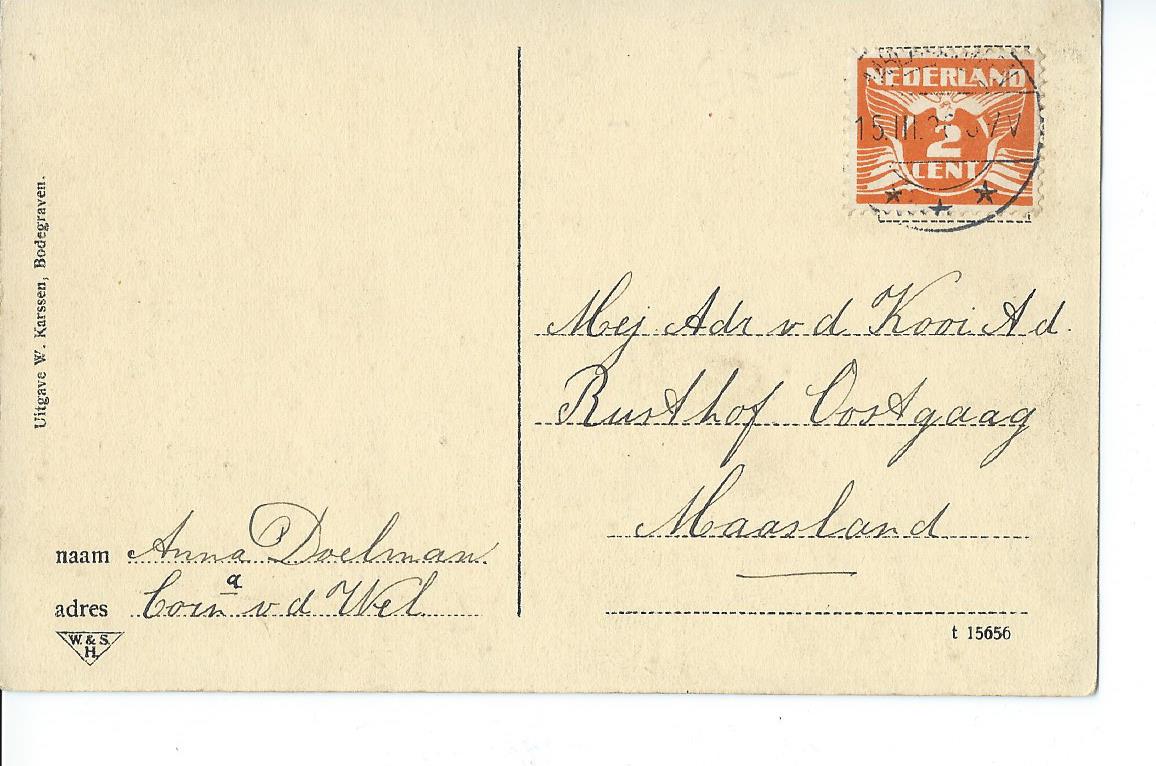 Uitgave W. Karssen, Bodegraven.
NEDERLAND
15.III.3
2
CENT
Mej Adr v d Kooi Ad.
Rusthof Oostgaag
Maasland
naam Anna Doelman.
adres Corn a v d Wel
W. & S.
H.
t 15656